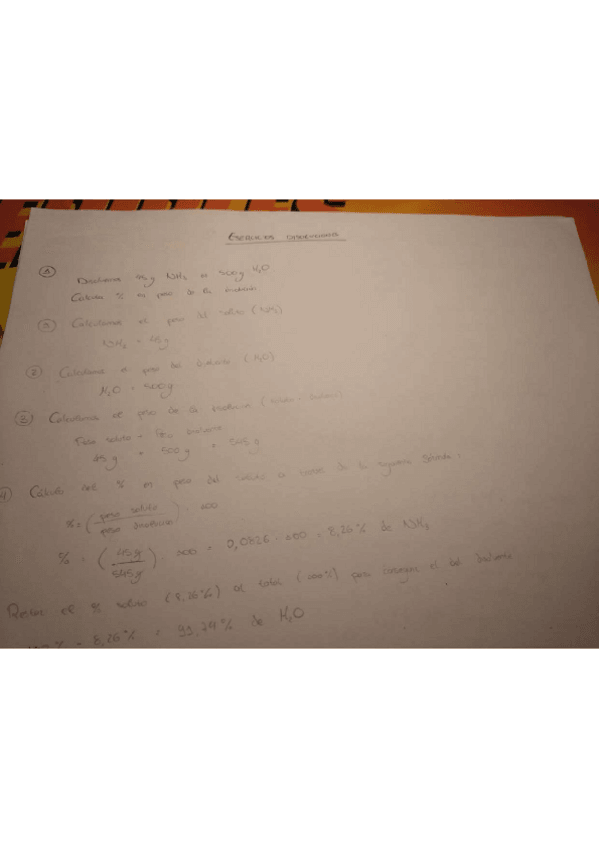 EJERCICIOS DISOLUCIONES
① Disolvemos 45g NH₃ en 500g H₂O
Calcula % en peso de la disolución
① Calculamos el peso del soluto (NH₃)
NH₃ = 45g
② Calculamos el peso del disolvente (H₂O)
H₂O = 500g
③ Calculamos el peso de la disolución (soluto + disolvente)
Peso soluto + Peso disolvente
45g + 500g = 545g
④ Cálculo del % en peso del soluto a través de la siguiente fórmula:
% = (peso soluto / peso disolución) · 100
% = (45g / 545g) · 100 = 0,0826 · 100 = 8,26% de NH₃
Restar el % soluto (8,26%) al total (100%) para conseguir el del disolvente
100% - 8,26% = 91,74% de H₂O